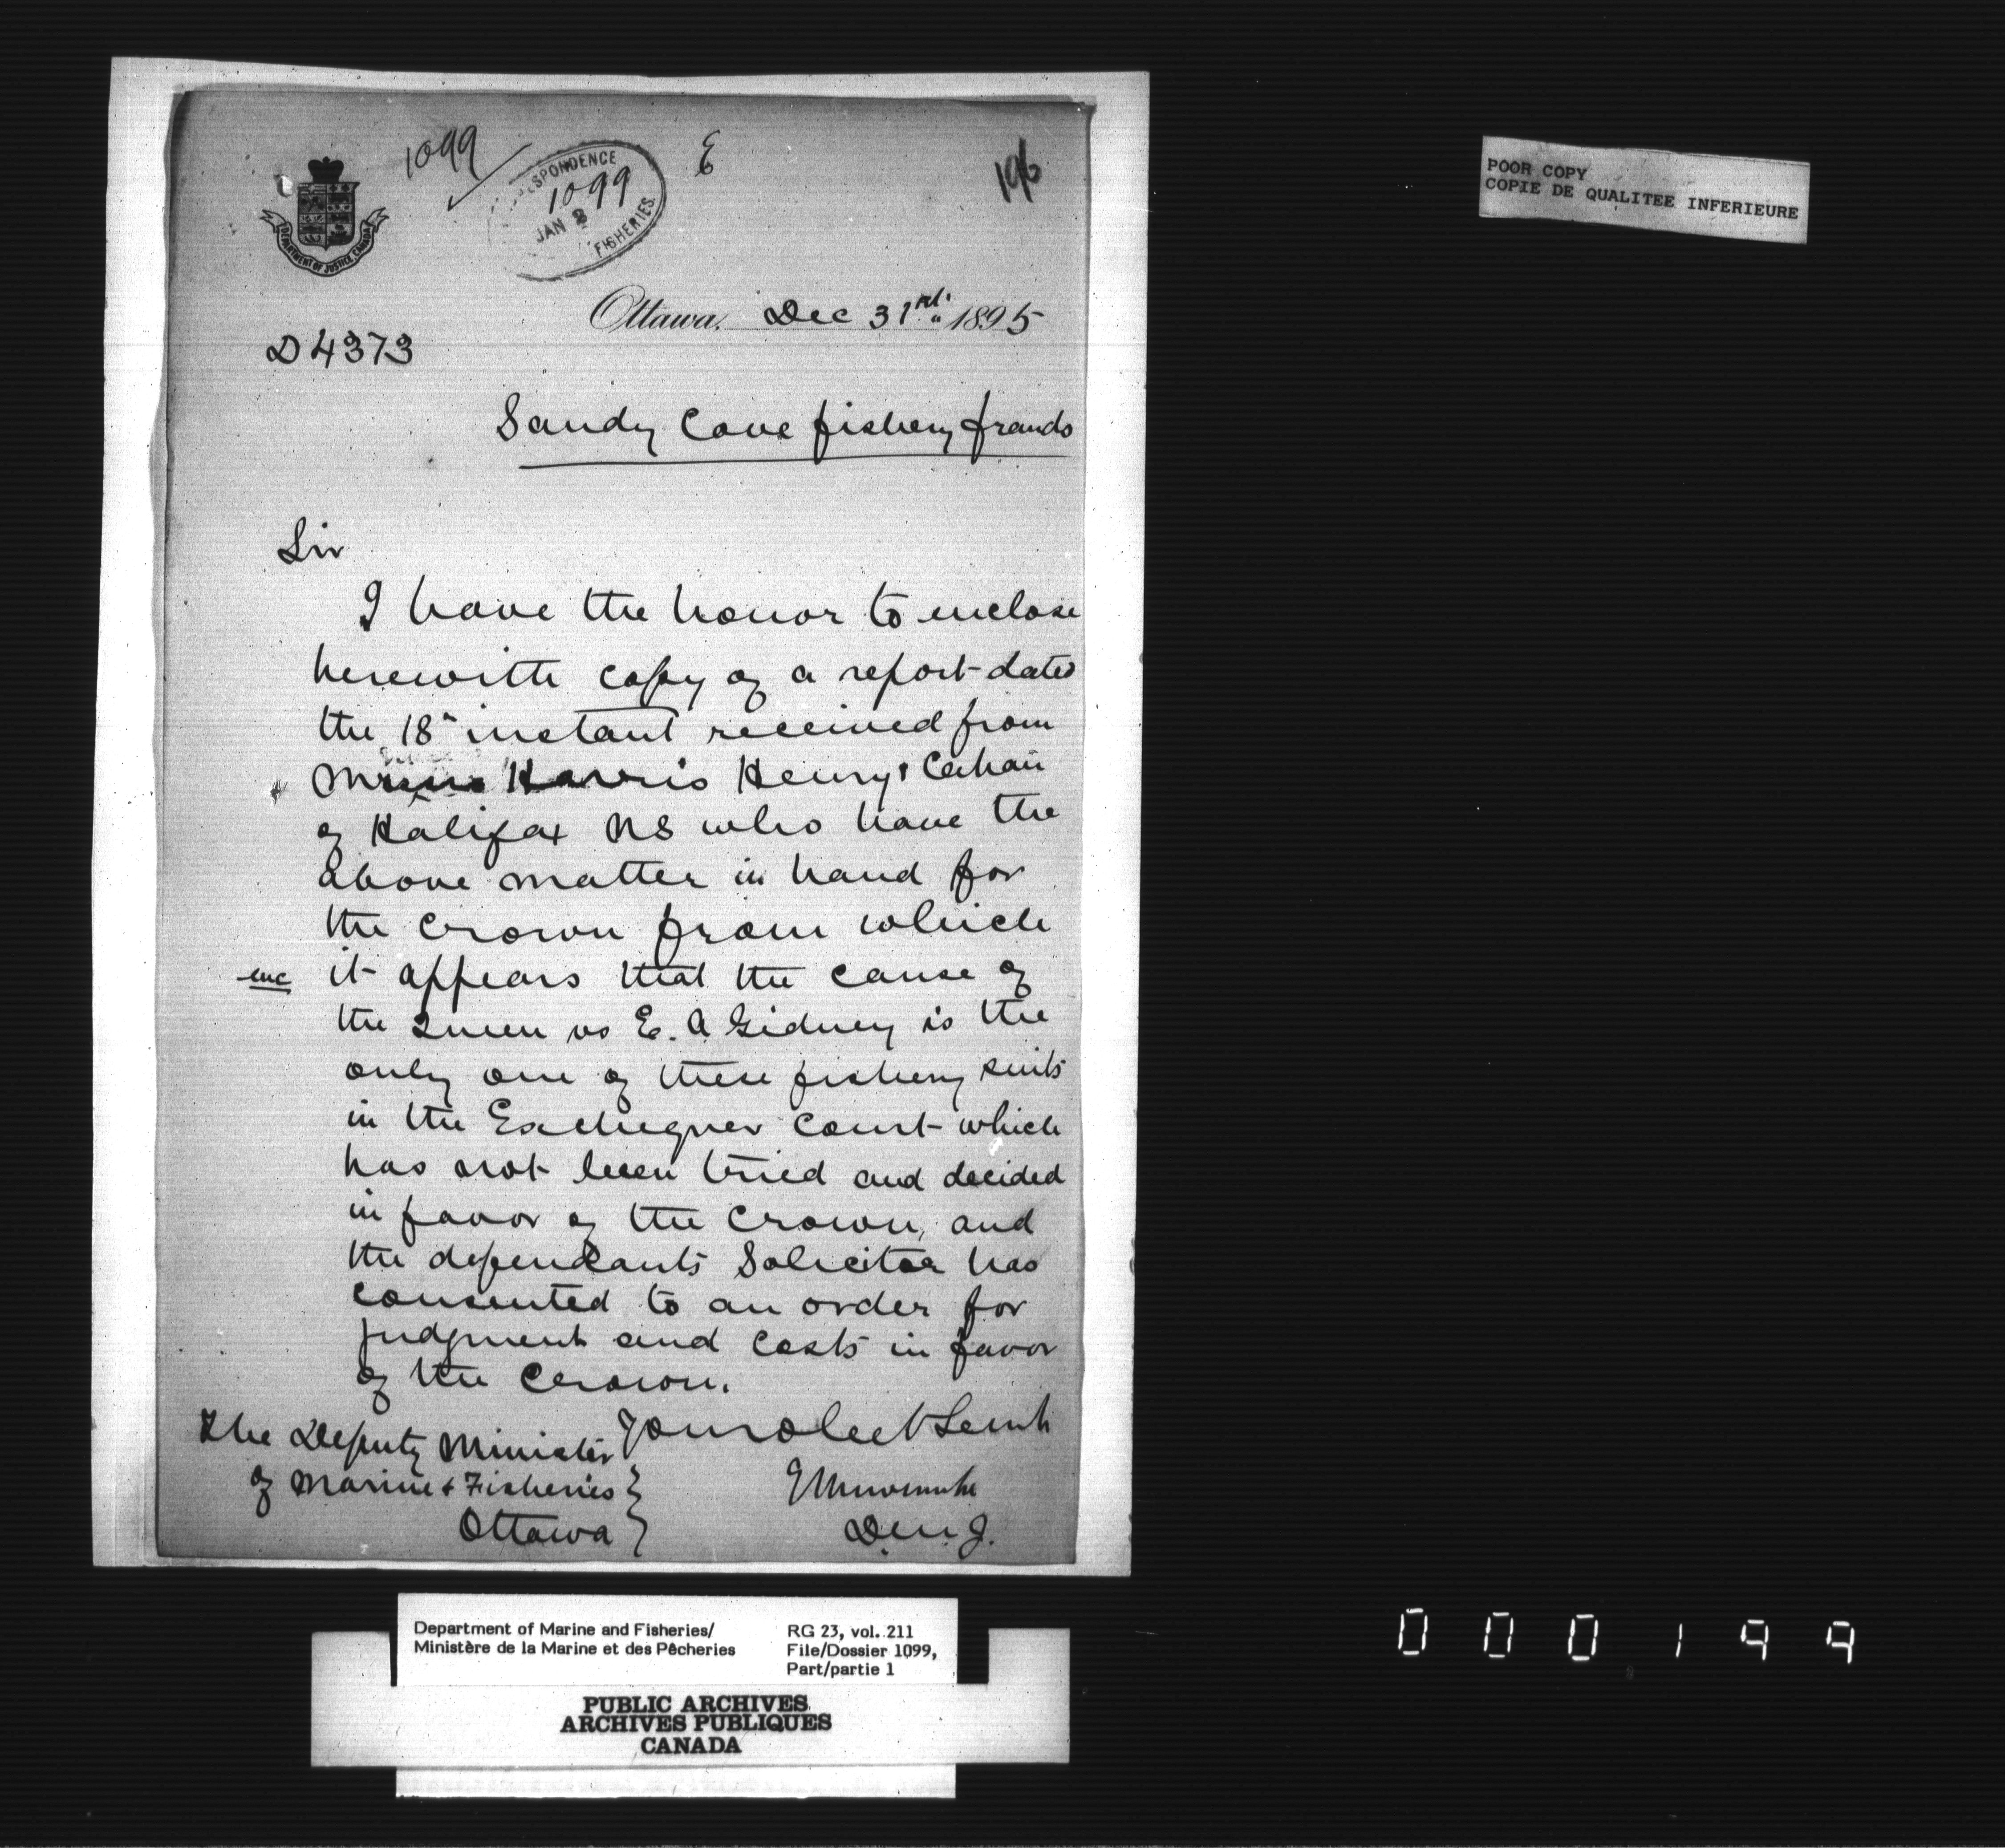 1099
E
196
SPONDENCE
1099
JAN 2
FISHERIES.
DEPARTMENT OF JUSTICE, CANADA
Ottawa, Dec 31st 1895
D 4373
Sandy Cove fishery frauds
Sir
I have the honor to enclose
herewith copy of a report dated
the 18" instant received from
Messrs Harris Henry & Cahan
of Halifax NS who have the
above matter in hand for
the Crown from which
enc it appears that the cause of
the Queen vs E. A Gidney is the
only one of these fishery suits
in the Exchequer Court which
has not been tried and decided
in favor of the Crown, and
the defendants Solicitor has
consented to an order for
judgment and costs in favor
of the Crown.
Your obedt Servt
The Deputy Minister
of Marine & Fisheries
Ottawa
D.M.J.
POOR COPY
COPIE DE QUALITEE INFERIEURE
Department of Marine and Fisheries/
Ministère de la Marine et des Pêcheries
RG 23, vol. 211
File/Dossier 1099,
Part/partie 1
PUBLIC ARCHIVES
ARCHIVES PUBLIQUES
CANADA
000199